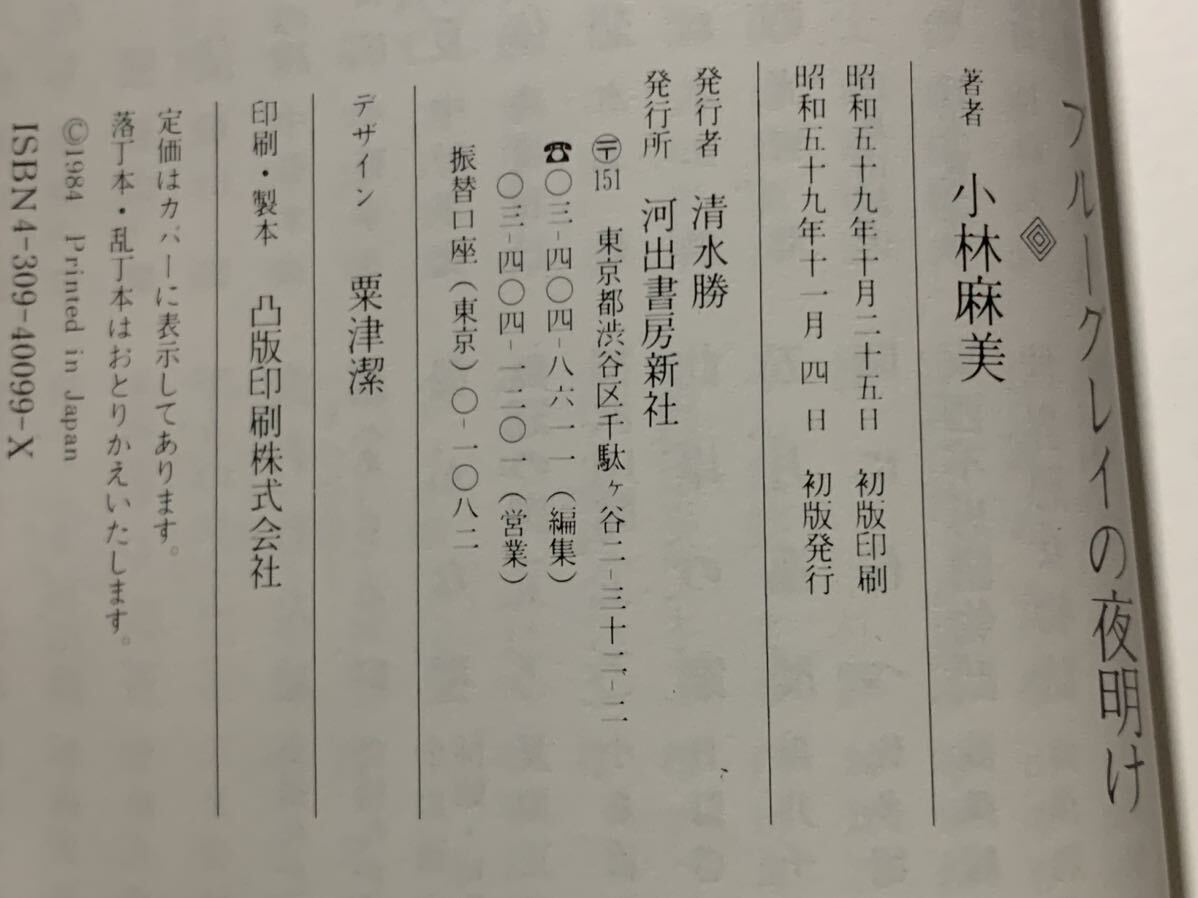 ブルーグレイの夜明け
著者 小林麻美
昭和五十九年十月二十五日 初版印刷
昭和五十九年十一月四日 初版発行
発行者 清水勝
発行所 河出書房新社
〒151 東京都渋谷区千駄ヶ谷二-三十二-二
☎〇三-四〇四-八六一一(編集)
〇三-四〇四-一二〇一(営業)
振替口座(東京)〇-一〇八二
デザイン 粟津潔
印刷・製本 凸版印刷株式会社
定価はカバーに表示してあります。
落丁本・乱丁本はおとりかえいたします。
©1984 Printed in Japan
ISBN4-309-40099-X